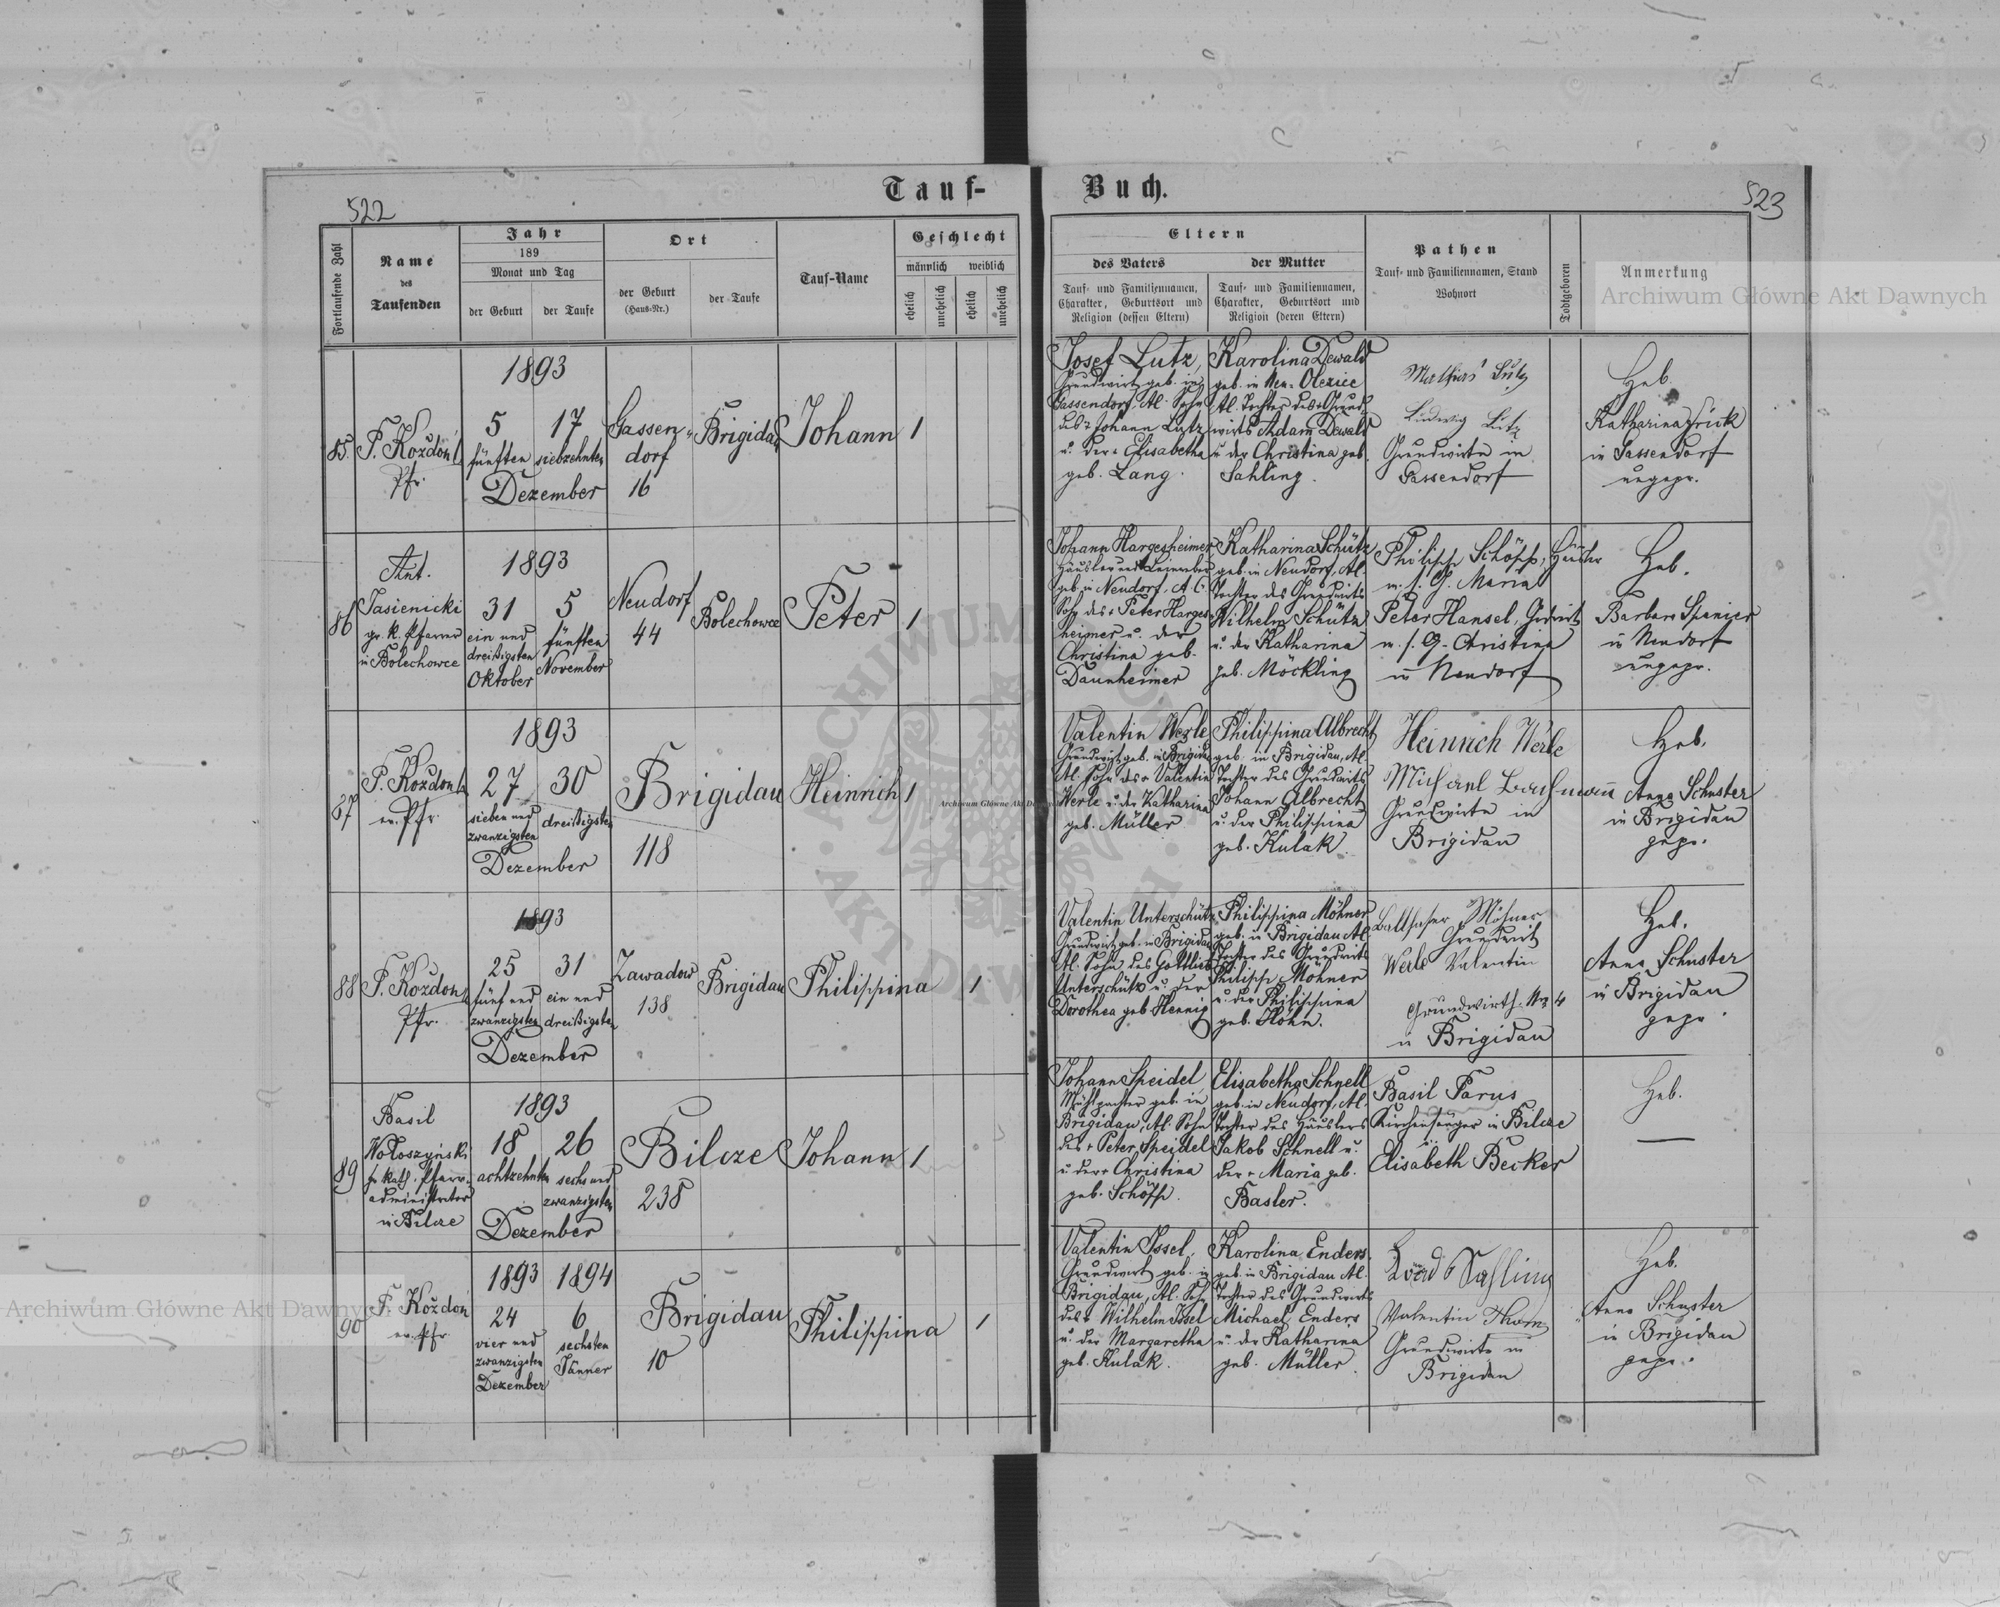 Tauf-
Buch.
522
523
Fortlaufende Zahl
Name
des
Taufenden
Jahr
189
Monat und Tag
der Geburt
der Taufe
Ort
der Geburt
(Haus-Nr.)
der Taufe
Tauf-Name
Geschlecht
männlich
weiblich
ehelich
unehelich
ehelich
unehelich
Eltern
des Vaters
Tauf- und Familiennamen,
Charakter, Geburtsort und
Religion (dessen Eltern)
der Mutter
Tauf- und Familiennamen,
Charakter, Geburtsort und
Religion (deren Eltern)
Pathen
Tauf- und Familiennamen, Stand
Wohnort
Todtgeboren
Anmerkung
Archiwum Główne Akt Dawnych
85.
F. Koždoń
Pfr.
1893
5
fünften
17
siebzehnten
Dezember
Gassen-
dorf
16
Brigidau
Johann
1
Josef Lutz,
Grundwirt geb. in
Gassendorf, Al. Sohn
des + Johann Lutz
u. der + Elisabetha
geb. Lang.
Karolina Dewald
geb. in Neu-Olexice
Al. Tochter des + Grund-
wirts Adam Dewald
u. der Christina geb.
Sahling.
Mathias Lutz
Ludwig Lutz
Grundwirte in
Gassendorf
Heb.
Katharina Frick
in Gassendorf
ungepr.
86
Ant.
Jasienicki
gr. k. Pfarrer
in Bolechowce
1893
31
ein und
dreißigsten
Oktober
5
fünften
November
Neudorf
44
Bolechowce
Peter
1
Johann Hargesheimer
Häusler und
geb. in Neudorf, A. C.
Sohn des + Peter Harges-
heimer u. der
Christina geb.
Daunheimer
Katharina Schütz
geb. in Neudorf, Al.
Tochter des Grundwirts
Wilhelm Schütz
u. der Katharina
geb. Möckling
Philipp Schöpp, Häusler
m. s. G. Maria
Peter Hansel, Grdwirt
m. s. G. Christina
in Neudorf
Heb.
Barbara Spanier
in Neudorf
ungepr.
87
F. Koždoń
ev. Pfr.
1893
27
sieben und
zwanzigsten
30
dreißigsten
Dezember
Brigidau
118
Heinrich
1
Valentin Werle
Grundwirt geb. in Brigidau
Al. Sohn des + Valentin
Werle u. der Katharina
geb. Müller
Philippina Albrecht
geb. in Brigidau, Al.
Tochter des Grundwirts
Johann Albrecht
u. der Philippina
geb. Kulak.
Heinrich Werle
Michael Bachmann
Grundwirte in
Brigidau
Heb.
Anna Schuster
in Brigidau
gepr.
88
F. Koždoń
Pfr.
1893
25
fünf und
zwanzigsten
31
ein und
dreißigsten
Dezember
Zawadow
138
Brigidau
Philippina
1
Valentin Unterschütz
Grundwirt geb. in Brigidau
Al. Sohn des Gottlieb
Unterschütz u. der
Dorothea geb. Hennig
Philippina Möhner
geb. in Brigidau Al.
Tochter des Grundwirts
Philipp Möhner
u. der Philippina
geb. Höhn.
Balthaser Möhner
Grundwirt
Werle Valentin
Grundwirth
in Brigidau
Heb.
Anna Schuster
in Brigidau
gepr.
89
Basil
Wołoszyński
gr. kath. Pfarr-
administrator
in Bilcze
1893
18
achtzehnten
26
sechs und
zwanzigsten
Dezember
Bilcze
238
Johann
1
Johann Speidel
Mühlpachter geb. in
Brigidau, Al. Sohn
des + Peter Speidel
u. der + Christina
geb. Schöpp.
Elisabetha Schnell
geb. in Neudorf, Al.
Tochter des Häuslers
Jakob Schnell u.
der + Maria geb.
Basler.
Basil Parus
Kirchensänger in Bilcze
u.
Elisabeth Becker
Heb.
—
90
F. Koždoń
ev. Pfr
1893
24
vier und
zwanzigsten
Dezember
1894
6
sechsten
Jänner
Brigidau
10
Philippina
1
Valentin Issel,
Grundwirt geb. in
Brigidau, Al. Sohn
des + Wilhelm Issel
u. der Margaretha
geb. Kulak.
Karolina Enders.
geb. in Brigidau Al.
Tochter des Grundwirts
Michael Enders
u. der Katharina
geb. Müller.
Sahling
Valentin Thom
Grundwirte in
Brigidau
Heb.
Anna Schuster
in Brigidau
gepr.
Archiwum Główne Akt Dawnych